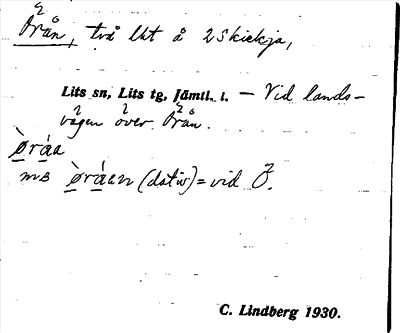 Örån, två lht å 2 Skickja,
Lits sn, Lits tg, Jämtl. l. – Vid lands-
vägen över Örån.
Ø̀ráa
ms ø̀ráan (dativ) = vid Ö.
C. Lindberg 1930.